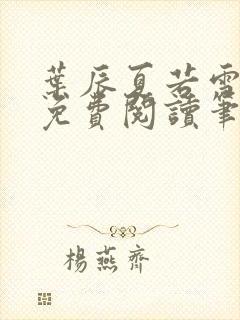 葉辰夏若雪
免費閱讀筆
楊燕齊